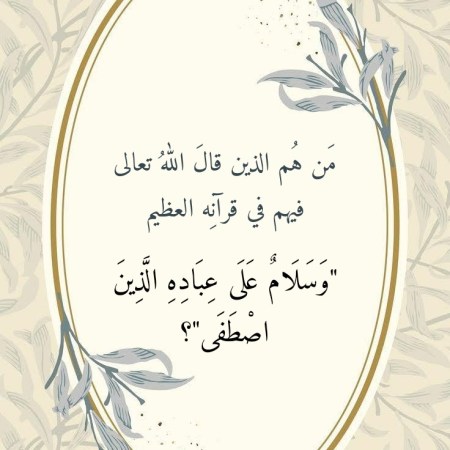 مَن هُم الذين قالَ اللهُ تعالى
فيهم في قرآنِه العظيم
"وَسَلَامٌ عَلَى عِبَادِهِ الَّذِينَ
اصْطَفَى"؟